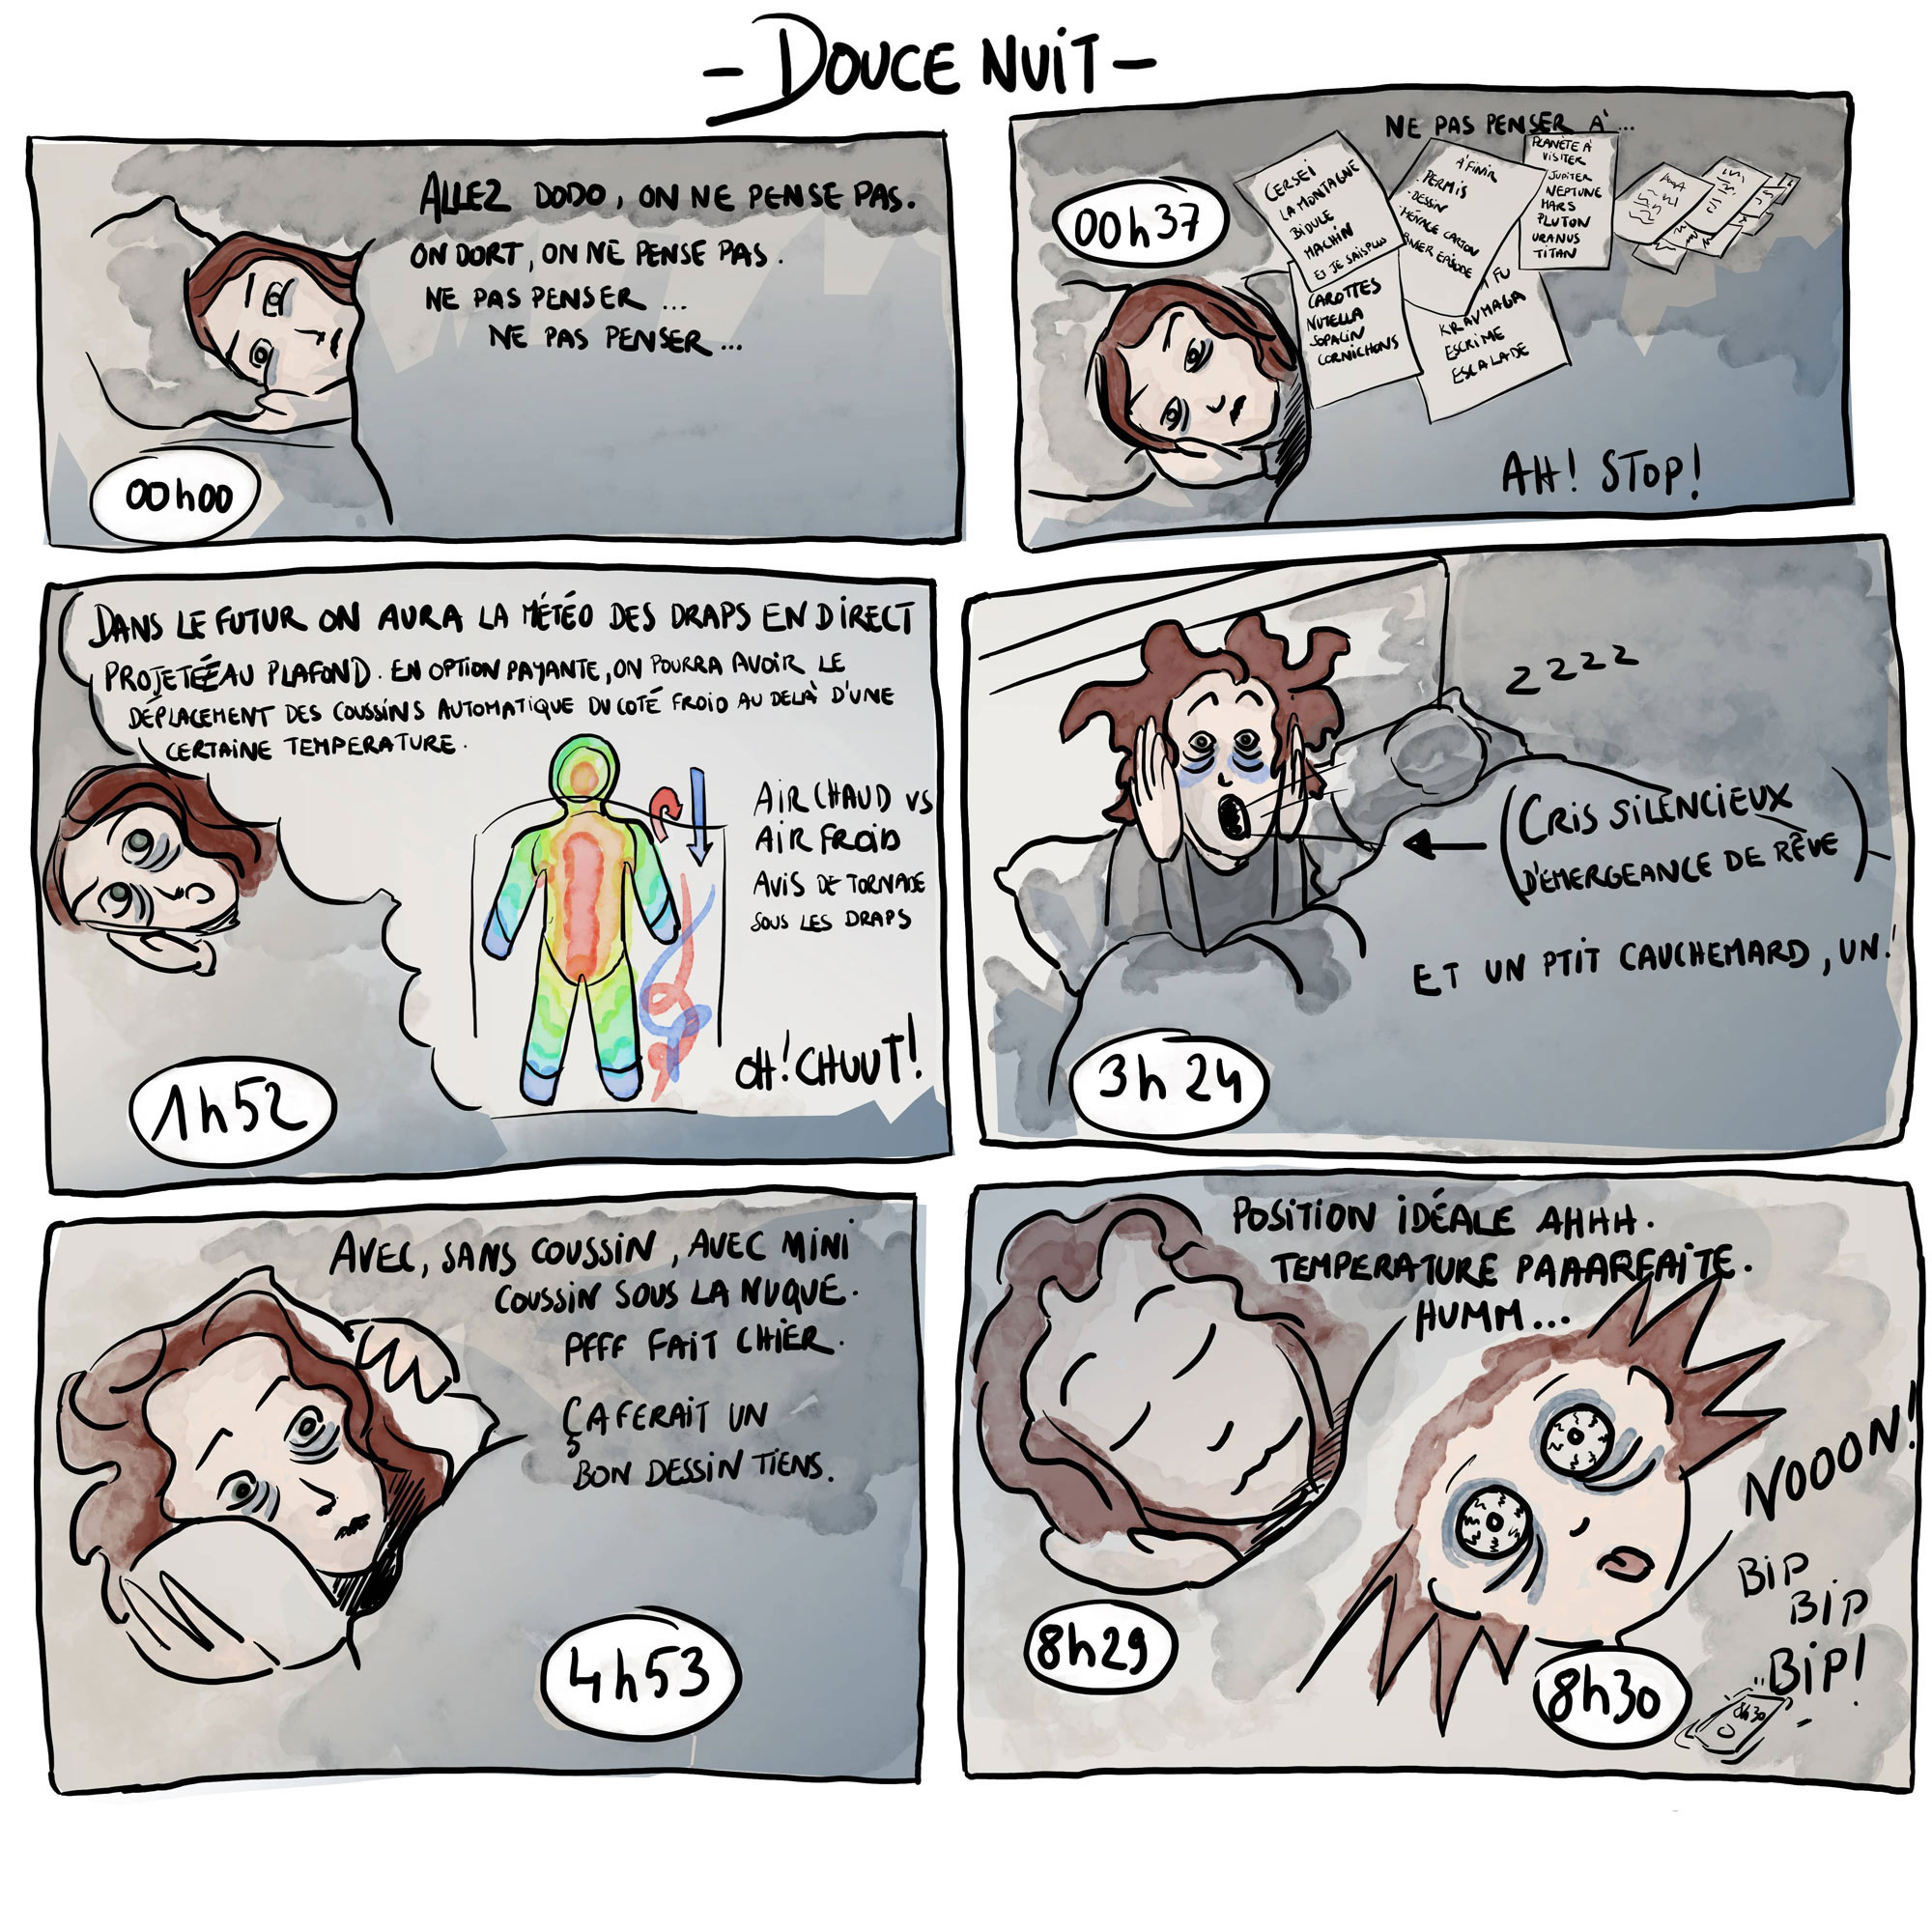 - DOUCE NUIT -
ALLEZ DODO, ON NE PENSE PAS.
ON DORT, ON NE PENSE PAS.
NE PAS PENSER ...
NE PAS PENSER ...
00h00
NE PAS PENSER À ...
00h37
CERSEI
LA MONTAGNE
BIDULE
MACHIN
ET JE SAIS PLUS
À FINIR
- PERMIS
- DESSIN
- MÉNAGE CARTON
EPISODE
PLANÈTE À
VISITER
JUPITER
NEPTUNE
MARS
PLUTON
URANUS
TITAN
CAROTTES
NUTELLA
SOPALIN
CORNICHONS
FU
KRAVMAGA
ESCRIME
ESCALADE
AH! STOP!
DANS LE FUTUR ON AURA LA MÉTÉO DES DRAPS EN DIRECT
PROJETÉE AU PLAFOND. EN OPTION PAYANTE, ON POURRA AVOIR LE
DÉPLACEMENT DES COUSSINS AUTOMATIQUE DU COTÉ FROID AU DELÀ D'UNE
CERTAINE TEMPERATURE.
AIR CHAUD VS
AIR FROID
AVIS DE TORNADE
SOUS LES DRAPS
OH! CHUUT!
1h52
ZZZZ
(CRIS SILENCIEUX
D'ÉMERGEANCE DE RÊVE)
ET UN PTIT CAUCHEMARD, UN!
3h24
AVEC, SANS COUSSIN, AVEC MINI
COUSSIN SOUS LA NUQUE.
PFFF FAIT CHIER.
ÇA FERAIT UN
BON DESSIN TIENS.
4h53
POSITION IDÉALE AHHH.
TEMPERATURE PAAARFAITE.
HUMM...
8h29
NOOON!
BIP
BIP
BIP!
8h30
8h30